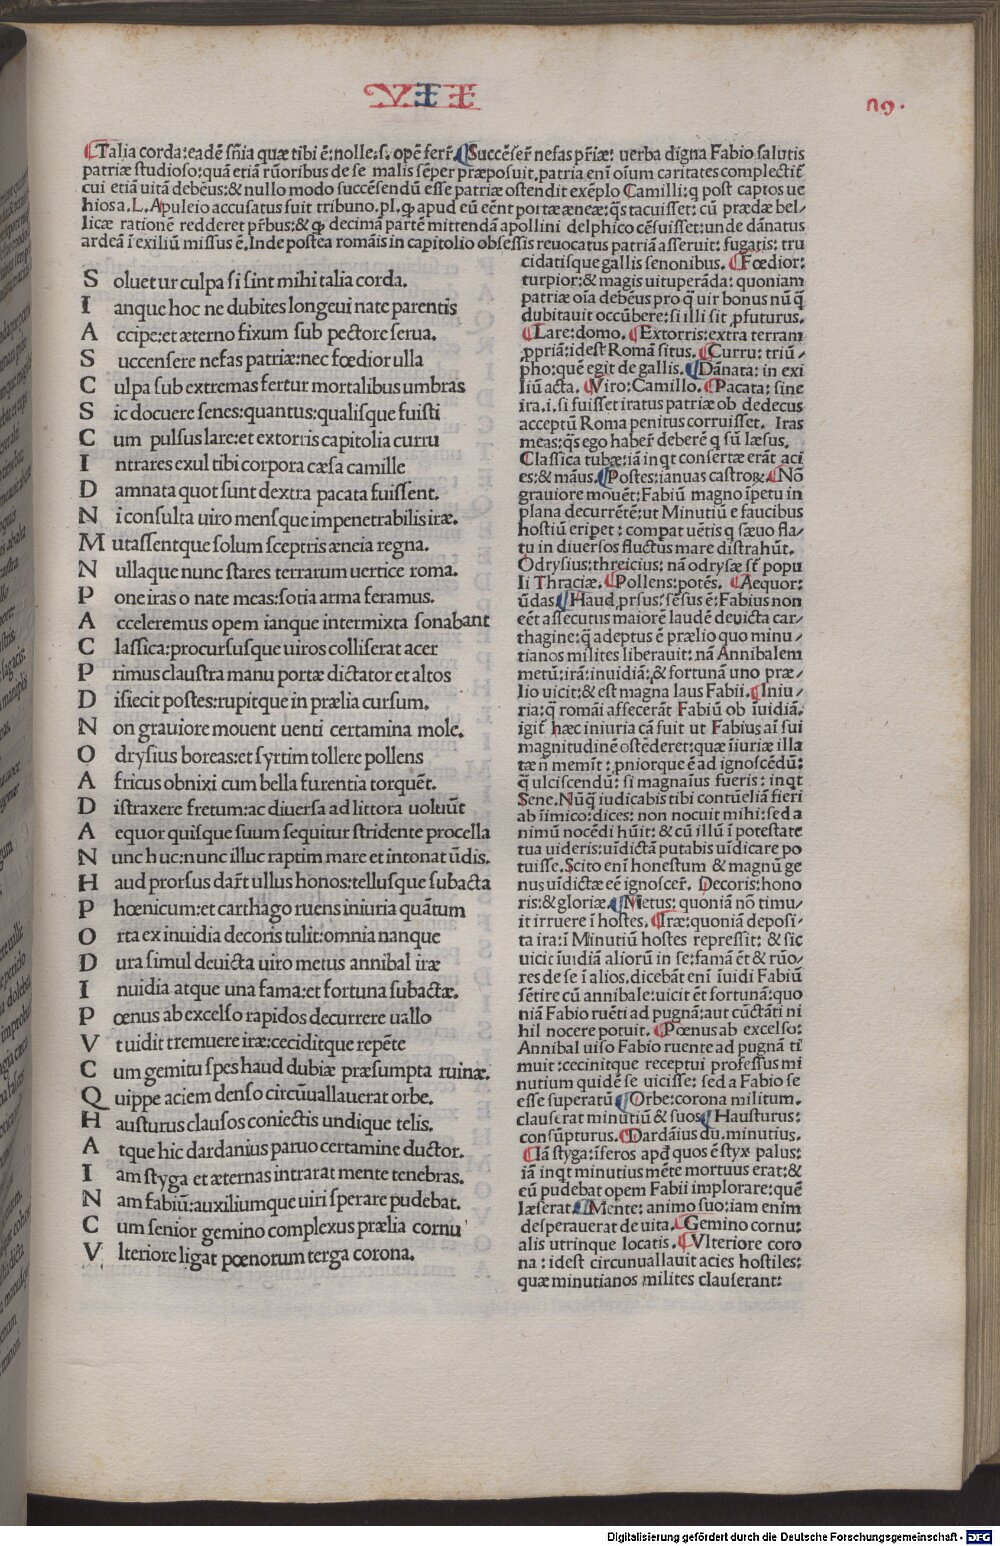 VII
89.
Talia corda:eadē sn̄ia quæ tibi ē:nolle:s. opē ferr̄. Succēser̄ nefas pr̄iæ: uerba digna Fabio salutis
patriæ studioso:quā etiā rūoribus de se malis sēper præposuit.patria eni oīum caritates complectit̄
cui etiā uitā debēus:& nullo modo succēsendū esse patriæ ostendit exēplo Camilli:q post captos ue
hios a.L.Apuleio accusatus fuit tribuno.pl.ꝙ apud eū eēnt portææneæ:q̄s tacuisset: cū prædæ bel/
licæ rationē redderet pr̄bus:& ꝙ decimā partē mittendā apollini delphico cēsuisset:unde dānatus
ardeā ī exiliū missus ē.Inde postea romāis in capitolio obsessis reuocatus patriā asseruit: fugatis: tru
S oluetur culpa si sint mihi talia corda.
I anque hoc ne dubites longeui nate parentis
A ccipe:et æterno fixum sub pectore serua.
S uccensere nefas patriæ:nec fœdior ulla
C ulpa sub extremas fertur mortalibus umbras
S ic docuere senes:quantus:qualisque fuisti
C um pulsus lare:et extorris capitolia curru
I ntrares exul tibi corpora cæsa camille
D amnata quot sunt dextra pacata fuissent.
N i consulta uiro mensque impenetrabilis iræ.
M utassentque solum sceptris æneia regna.
N ullaque nunc stares terrarum uertice roma.
P one iras o nate meas:sotia arma feramus.
A cceleremus opem ianque intermixta sonabant
C lassica:procursusque uiros colliserat acer
P rimus claustra manu portæ dictator et altos
D isiecit postes:rupitque in prælia cursum.
N on grauiore mouent uenti certamina mole.
O drysius boreas:et syrtim tollere pollens
A fricus obnixi cum bella furentia torquēt.
D istraxere fretum:ac diuersa ad littora uoluūt
A equor quisque suum sequitur stridente procella
N unc huc:nunc illuc raptim mare et intonat ūdis.
H aud prorsus dar̄t ullus honos:tellusque subacta
P hœnicum:et carthago ruens iniuria quātum
O rta ex inuidia decoris tulit:omnia nanque
D ura simul deuicta uiro metus annibal iræ
I nuidia atque una fama:et fortuna subactæ.
P œnus ab excelso rapidos decurrere uallo
V t uidit tremuere iræ:ceciditque repēte
C um gemitu spes haud dubiæ præsumpta ruinæ.
Q uippe aciem denso circūuallauerat orbe.
H austurus clausos coniectis undique telis.
A tque hic dardanius paruo certamine ductor.
I am styga et æternas intrarat mente tenebras.
N am fabiū:auxiliumque uiri sperare pudebat.
C um senior gemino complexus prælia cornu
V lteriore ligat pœnorum terga corona.
cidatisque gallis senonibus. Fœdior:
turpior:& magis uituperāda: quoniam
patriæ oīa debēus pro q̄ uir bonus nū q̄
dubitauit occūbere:si illi sit ꝓfuturus.
Lare:domo. Extorris:extra terram
ꝓpriā:idest Romā situs. Curru: triū/
pho:quē egit de gallis. Dānata: in exi
liū acta. Viro:Camillo. Pacata: sine
ira.i.si fuisset iratus patriæ ob dedecus
acceptū Roma penitus corruisset. Iras
meas:q̄s ego haber̄ deberē q sū læsus.
Classica tubæ:iā inqt consertæ erāt aci
es:& māus. Postes:ianuas castroꝝ. Nō
grauiore mouēt:Fabiū magno īpetu in
plana decurrētē:ut Minutiū e faucibus
hostiū eripet: compat uētis q sæuo fla/
tu in diuersos fluctus mare distrahūt.
Odrysius:threicius: nā odrysæ sr̄ popu
li Thraciæ. Pollens:potēs. Aequor:
ūdas. Haud ꝓrsus:sēsus ē:Fabius non
eēt assecutus maiorē laudē deuicta car/
thagine:q̄ adeptus ē prælio quo minu/
tianos milites liberauit:nā Annibalem
metū:irā:inuidiā:& fortunā uno præ/
lio uicit:& est magna laus Fabii. Iniu/
ria:q̄ romāi affecerāt Fabiū ob īuidiā.
igit̄ hæc iniuria cā fuit ut Fabius aī sui
magnitudinē ostēderet:quæ īiuriæ illa
tæ n̄ memīt: pniorque ē ad ignoscēdū:
q̄ ulciscendū: si magnaīus fueris: inqt
Sene.Nūq̄ iudicabis tibi contūeliā fieri
ab īimico:dices: non nocuit mihi:sed a
nimū nocēdi hūit: & cū illū ī potestate
tua uideris:uīdictā putabis uīdicare po
tuisse.Scito eni honestum & magnū ge
nus uīdictæ eē ignoscer̄. Decoris:hono
ris:& gloriæ. Metus: quoniā nō timu/
it irruere ī hostes. Iræ:quoniā deposi/
ta ira:ī Minutiū hostes repressit: & sic
uicit īuidiā aliorū in se:famā ēt & rūo/
res de se ī alios.dicebāt eni īuidi Fabiū
sētire cū annibale:uicit ēt fortunā:quo
niā Fabio ruēti ad pugnā:aut cūctāti ni
hil nocere potuit. Pœnus ab excelso:
Annibal uiso Fabio ruente ad pugnā ti
muit:cecinitque receptui professus mi
nutium quidē se uicisse: sed a Fabio se
esse superatū. Orbe:corona militum.
clauserat minutiū & suos. Hausturus:
consūpturus. Dardāius du.minutius.
Iā styga:īferos apḋ quos ē styx palus:
iā inqt minutius mēte mortuus erat:&
eū pudebat opem Fabii implorare:quē
læserat. Mente: animo suo:iam enim
desperauerat de uita. Gemino cornu:
alis utrinque locatis. Vlteriore coro
na : idest circunuallauit acies hostiles:
quæ minutianos milites clauserant:
Digitalisierung gefördert durch die Deutsche Forschungsgemeinschaft - DFG